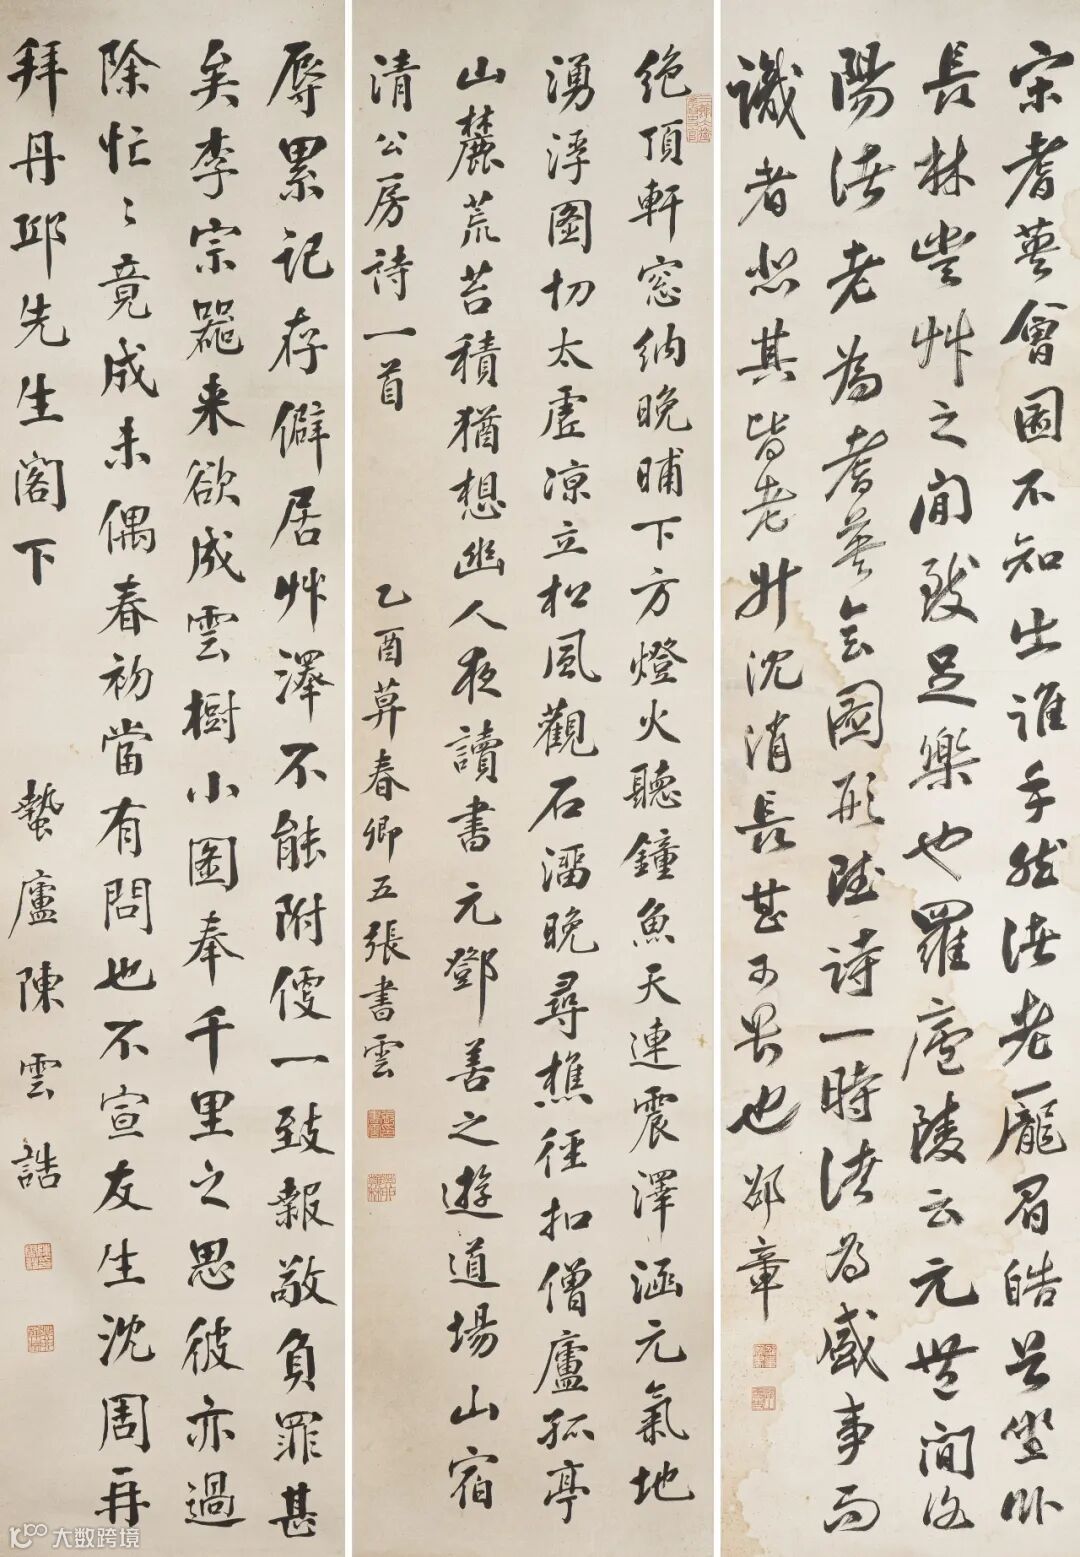 宋耆英會圖不知出誰手然諸老龐眉皓首坐卧
長林豐艸之間致足樂也羅廬陵云元豐間洛
陽諸老為耆英會圖形賦詩一時諸為盛事而
識者悲其皆老升沈消長甚可畏也 邵章
絶頂軒窓納晚晡下方燈火聽鐘魚天連震澤涵元氣地
湧浮圖切太虛凉立松風觀石溜晚尋樵徑扣僧廬孤亭
山麓荒苔積猶想幽人夜讀書 元鄧善之遊道場山宿
清公房詩一首
乙酉莫春卿五張書雲
辱累記存僻居艸澤不能附便一致報敬負罪甚
矣李宗器来欲成雲樹小圖奉千里之思彼亦過
除忙〻竟成未偶春初當有問也不宣友生沈周再
拜丹邱先生閣下
蟄廬陳雲誥
大数跨境